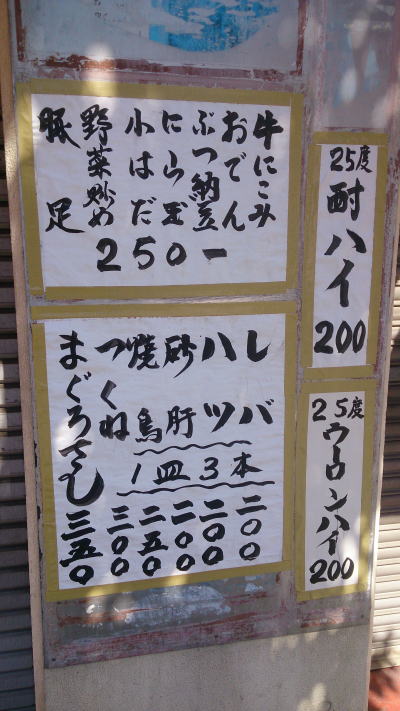 牛にこみ
おでん
ぶつ納豆
にら玉
小はだ
野菜炒め
豚足
250一
レバ 二〇〇
ハツ 二〇〇
砂肝 二〇〇
焼鳥 二五〇
つくね 三〇〇
1皿3本
まぐろさし 三五〇
25度
酎ハイ
200
25度
ウーロンハイ
200